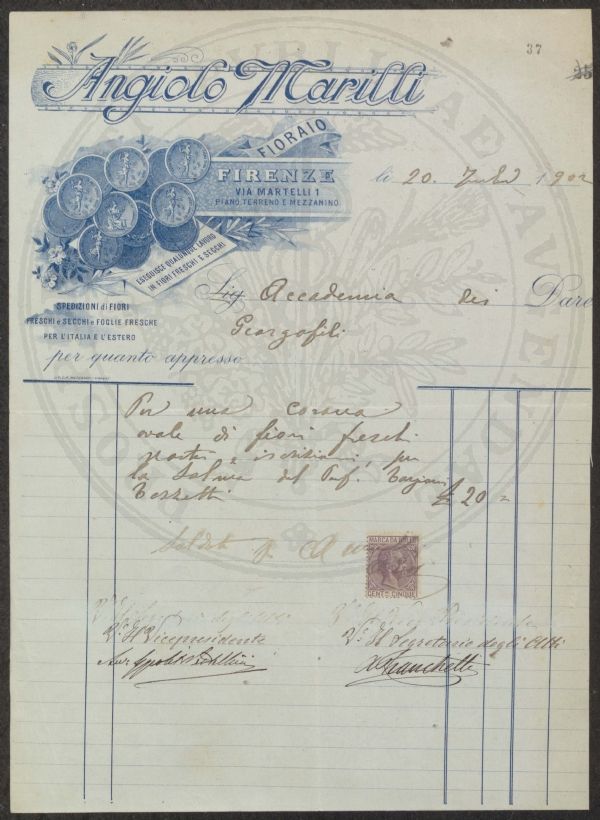 37
Angiolo Marilli
FIORAIO
FIRENZE
VIA MARTELLI 1
PIANO TERRENO E MEZZANINO
ESEGUISCE QUALUNQUE LAVORO
IN FIORI FRESCHI E SECCHI
li 20 1902
SPEDIZIONI di FIORI
FRESCHI e SECCHI e FOGLIE FRESCHE
PER L'ITALIA E L'ESTERO
Sig Accademia dei Dare
Georgofili
per quanto appresso
Per una corona
ovale di fiori freschi
nastri e iscrizioni per
la Salma del Prof. Targioni
Tozzetti £ 20 =
Saldato
MARCA DA BOLLO
CENT. CINQUE
Vo Il Vicepresidente
Vo Il Segretario degli Atti